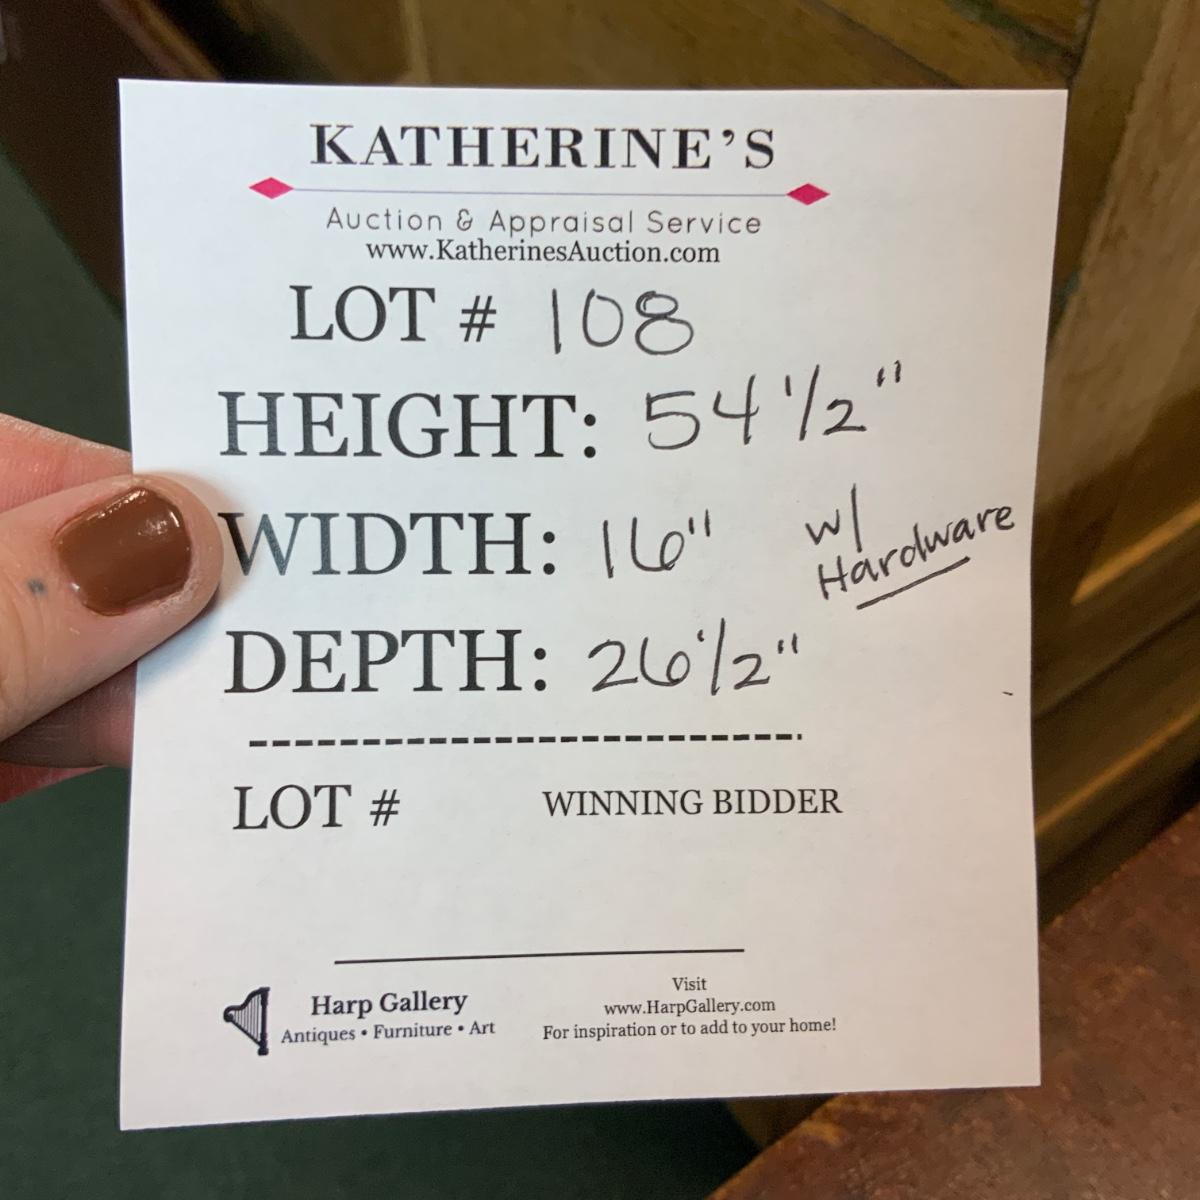 KATHERINE'S
Auction & Appraisal Service
www.KatherinesAuction.com
LOT # 108
HEIGHT: 54 1/2"
WIDTH: 16" w/ Hardware
DEPTH: 26 1/2"
LOT # WINNING BIDDER
Harp Gallery
Antiques • Furniture • Art
Visit
www.HarpGallery.com
For inspiration or to add to your home!